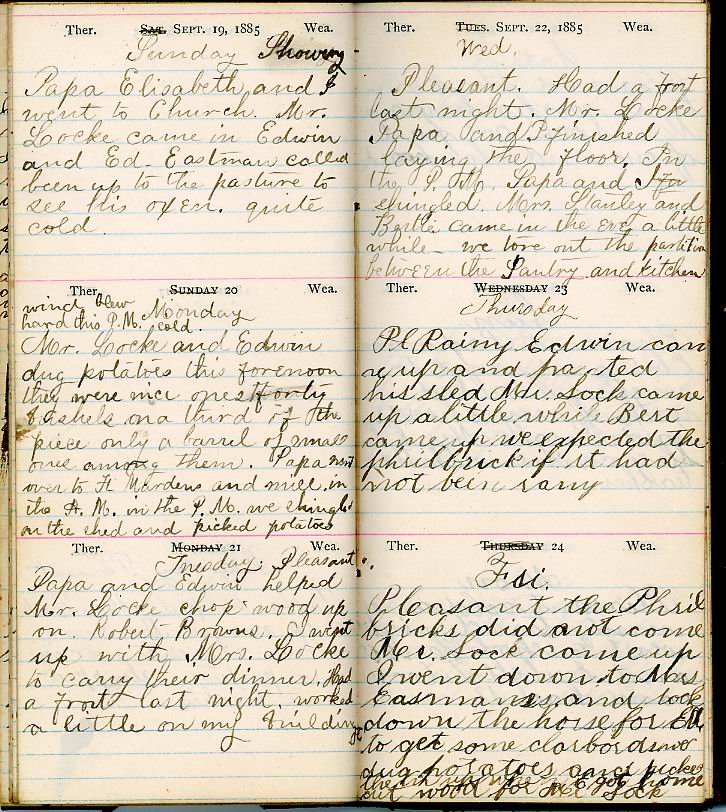 Ther. Sat. SEPT. 19, 1885 Wea.
Sunday Showery
Papa Elisabeth and I
went to Church. Mr.
Locke came in Edwin
and Ed. Eastman called
been up to the pasture to
see his oxen. quite
cold.
Ther. SUNDAY 20 Wea.
wind blew Monday
hard this P.M. cold.
Mr. Locke and Edwin
dug potatoes this forenoon
they were nice ones forty
bushels on a third of the
piece only a barrel of small
ones among them. Papa went
over to and mill in
the A. M. in the P. M. we shingled
on the shed and picked potatoes
Ther. MONDAY 21 Wea.
Tuesday Pleasant.
Papa and Edwin helped
Mr. Locke chop wood up
on Robert Browns. I went
up with Mrs. Locke
to carry their dinner. Had
a frost last night. worked
a little on my building
Ther. TUES. SEPT. 22, 1885 Wea.
Wed.
Pleasant. Had a frost
last night. Mr. Locke
Papa and I finished
laying the floor. In
the P. M. Papa and I
shingled. Mrs. Stanley and
Bertie came in the eve a little
while we tore out the partition
between the Pantry and kitchen
Ther. WEDNESDAY 23 Wea.
Thursday
Rainy Edwin cam
e up and pa ted
his sled Mr. Lock came
up a little while Bert
came up we expected the
philbrick if it had
not been rany
Ther. THURSDAY 24 Wea.
Fri.
Pleasant the Phril
bricks did not come
Mr. Lock come up
I went down to Mrs
Easmans and took
down the horse for
to get some clarbords
dug potatoes and picked
them up
cut wood for Mr Lock